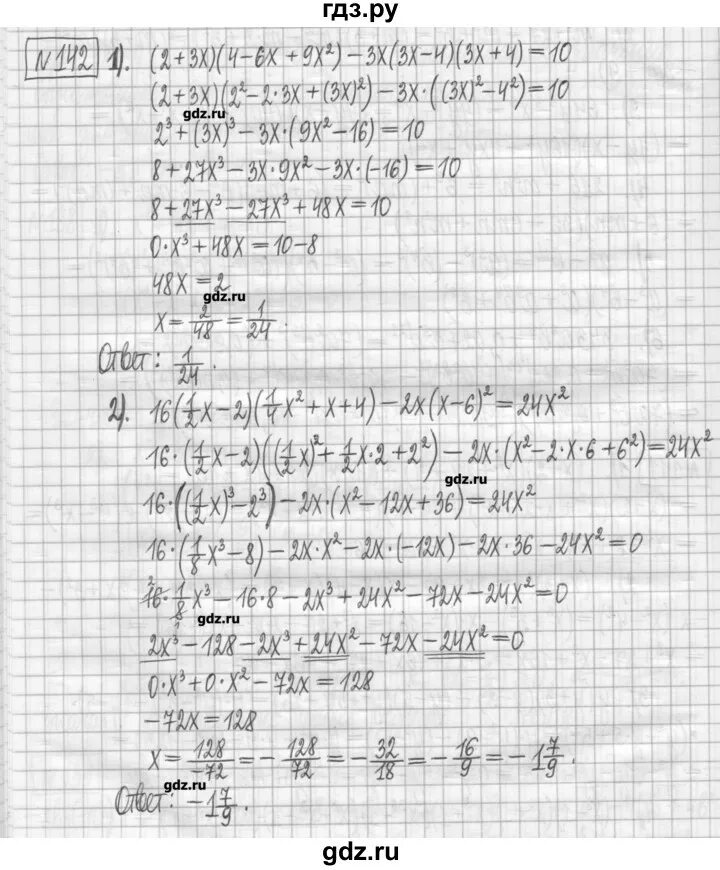 гдз.ру
№142 1). (2+3x)(4-6x+9x²)-3x(3x-4)(3x+4)=10
(2+3x)(2²-2·3x+(3x)²)-3x·((3x)²-4²)=10
gdz.ru
2³+(3x)³-3x·(9x²-16)=10
8+27x³-3x·9x²-3x·(-16)=10
8+27x³-27x³+48x=10
0·x³+48x=10-8
48x=2
gdz.ru
x=2/48=1/24.
Ответ: 1/24.
2). 16(1/2x-2)(1/4x²+x+4)-2x(x-6)²=24x²
16·(1/2x-2)((1/2x)²+1/2x·2+2²)-2x·(x²-2·x·6+6²)=24x²
gdz.ru
16·((1/2x)³-2³)-2x·(x²-12x+36)=24x²
16·(1/8x³-8)-2x·x²-2x·(-12x)-2x·36-24x²=0
16·1/8x³-16·8-2x³+24x²-72x-24x²=0
gdz.ru
2x³-128-2x³+24x²-72x-24x²=0
0·x³+0·x²-72x=128
-72x=128
x=128/-72=-128/72=-32/18=-16/9=-1 7/9.
gdz.ru
Ответ: -1 7/9.
gdz.ru